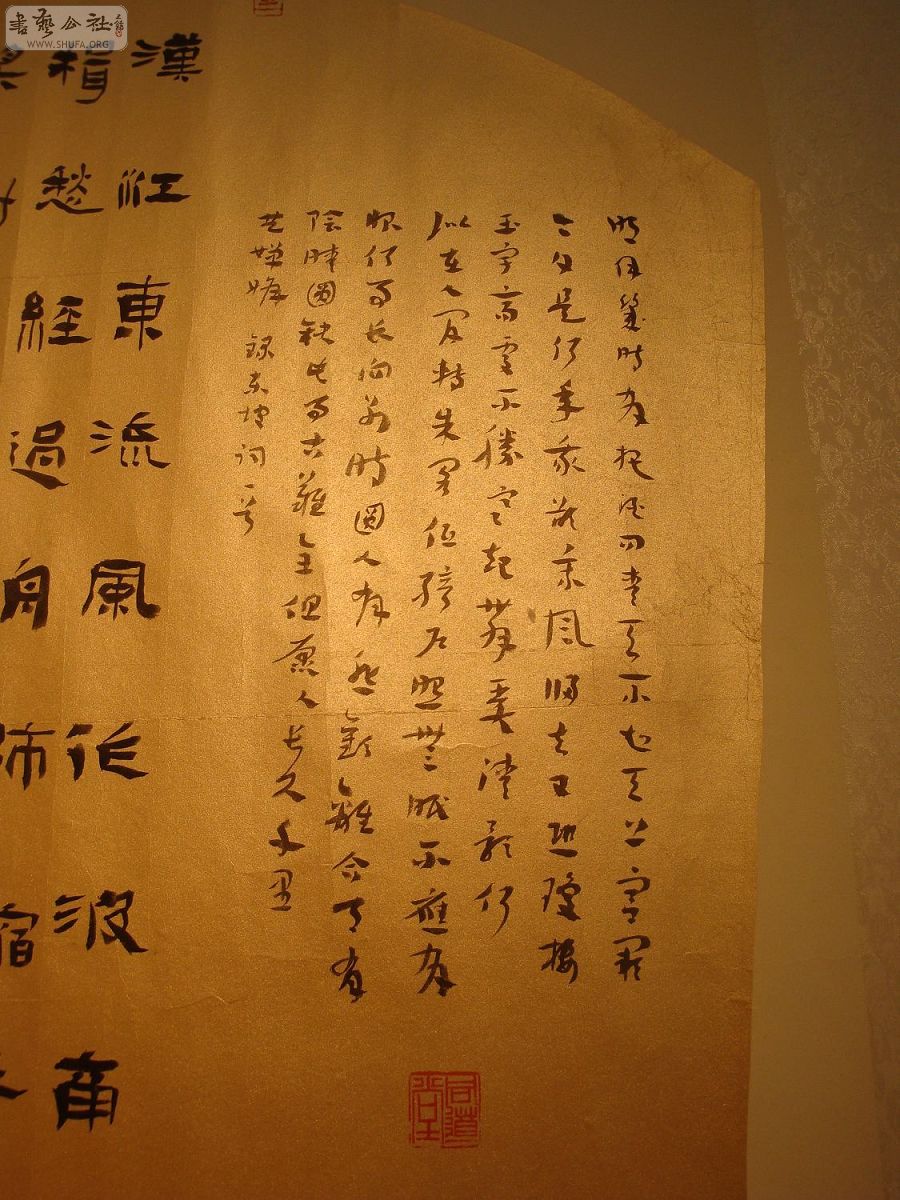 書藝公社
WWW.SHUFA.ORG
明月幾時有把酒問青天不知天上宮闕
今夕是何年我欲乘風歸去又恐瓊樓
玉宇高處不勝寒起舞弄清影何
似在人間轉朱閣低綺戶照無眠不應有
恨何事長向別時圓人有悲歡離合月有
陰晴圓缺此事古難全但願人長久千里
共嬋娟 錄東坡詞一首
同道堂
漢江東流風作波商
楫愁經過舟師宿